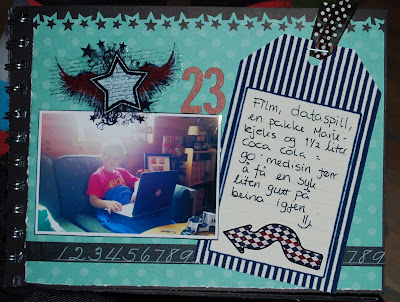 23
Film, dataspill,
en pakke Marie-
kjeks og 1 1/2 liter
coca cola =
go' medisin for
å få en syk
liten gutt på
beina igjen
123456789
789